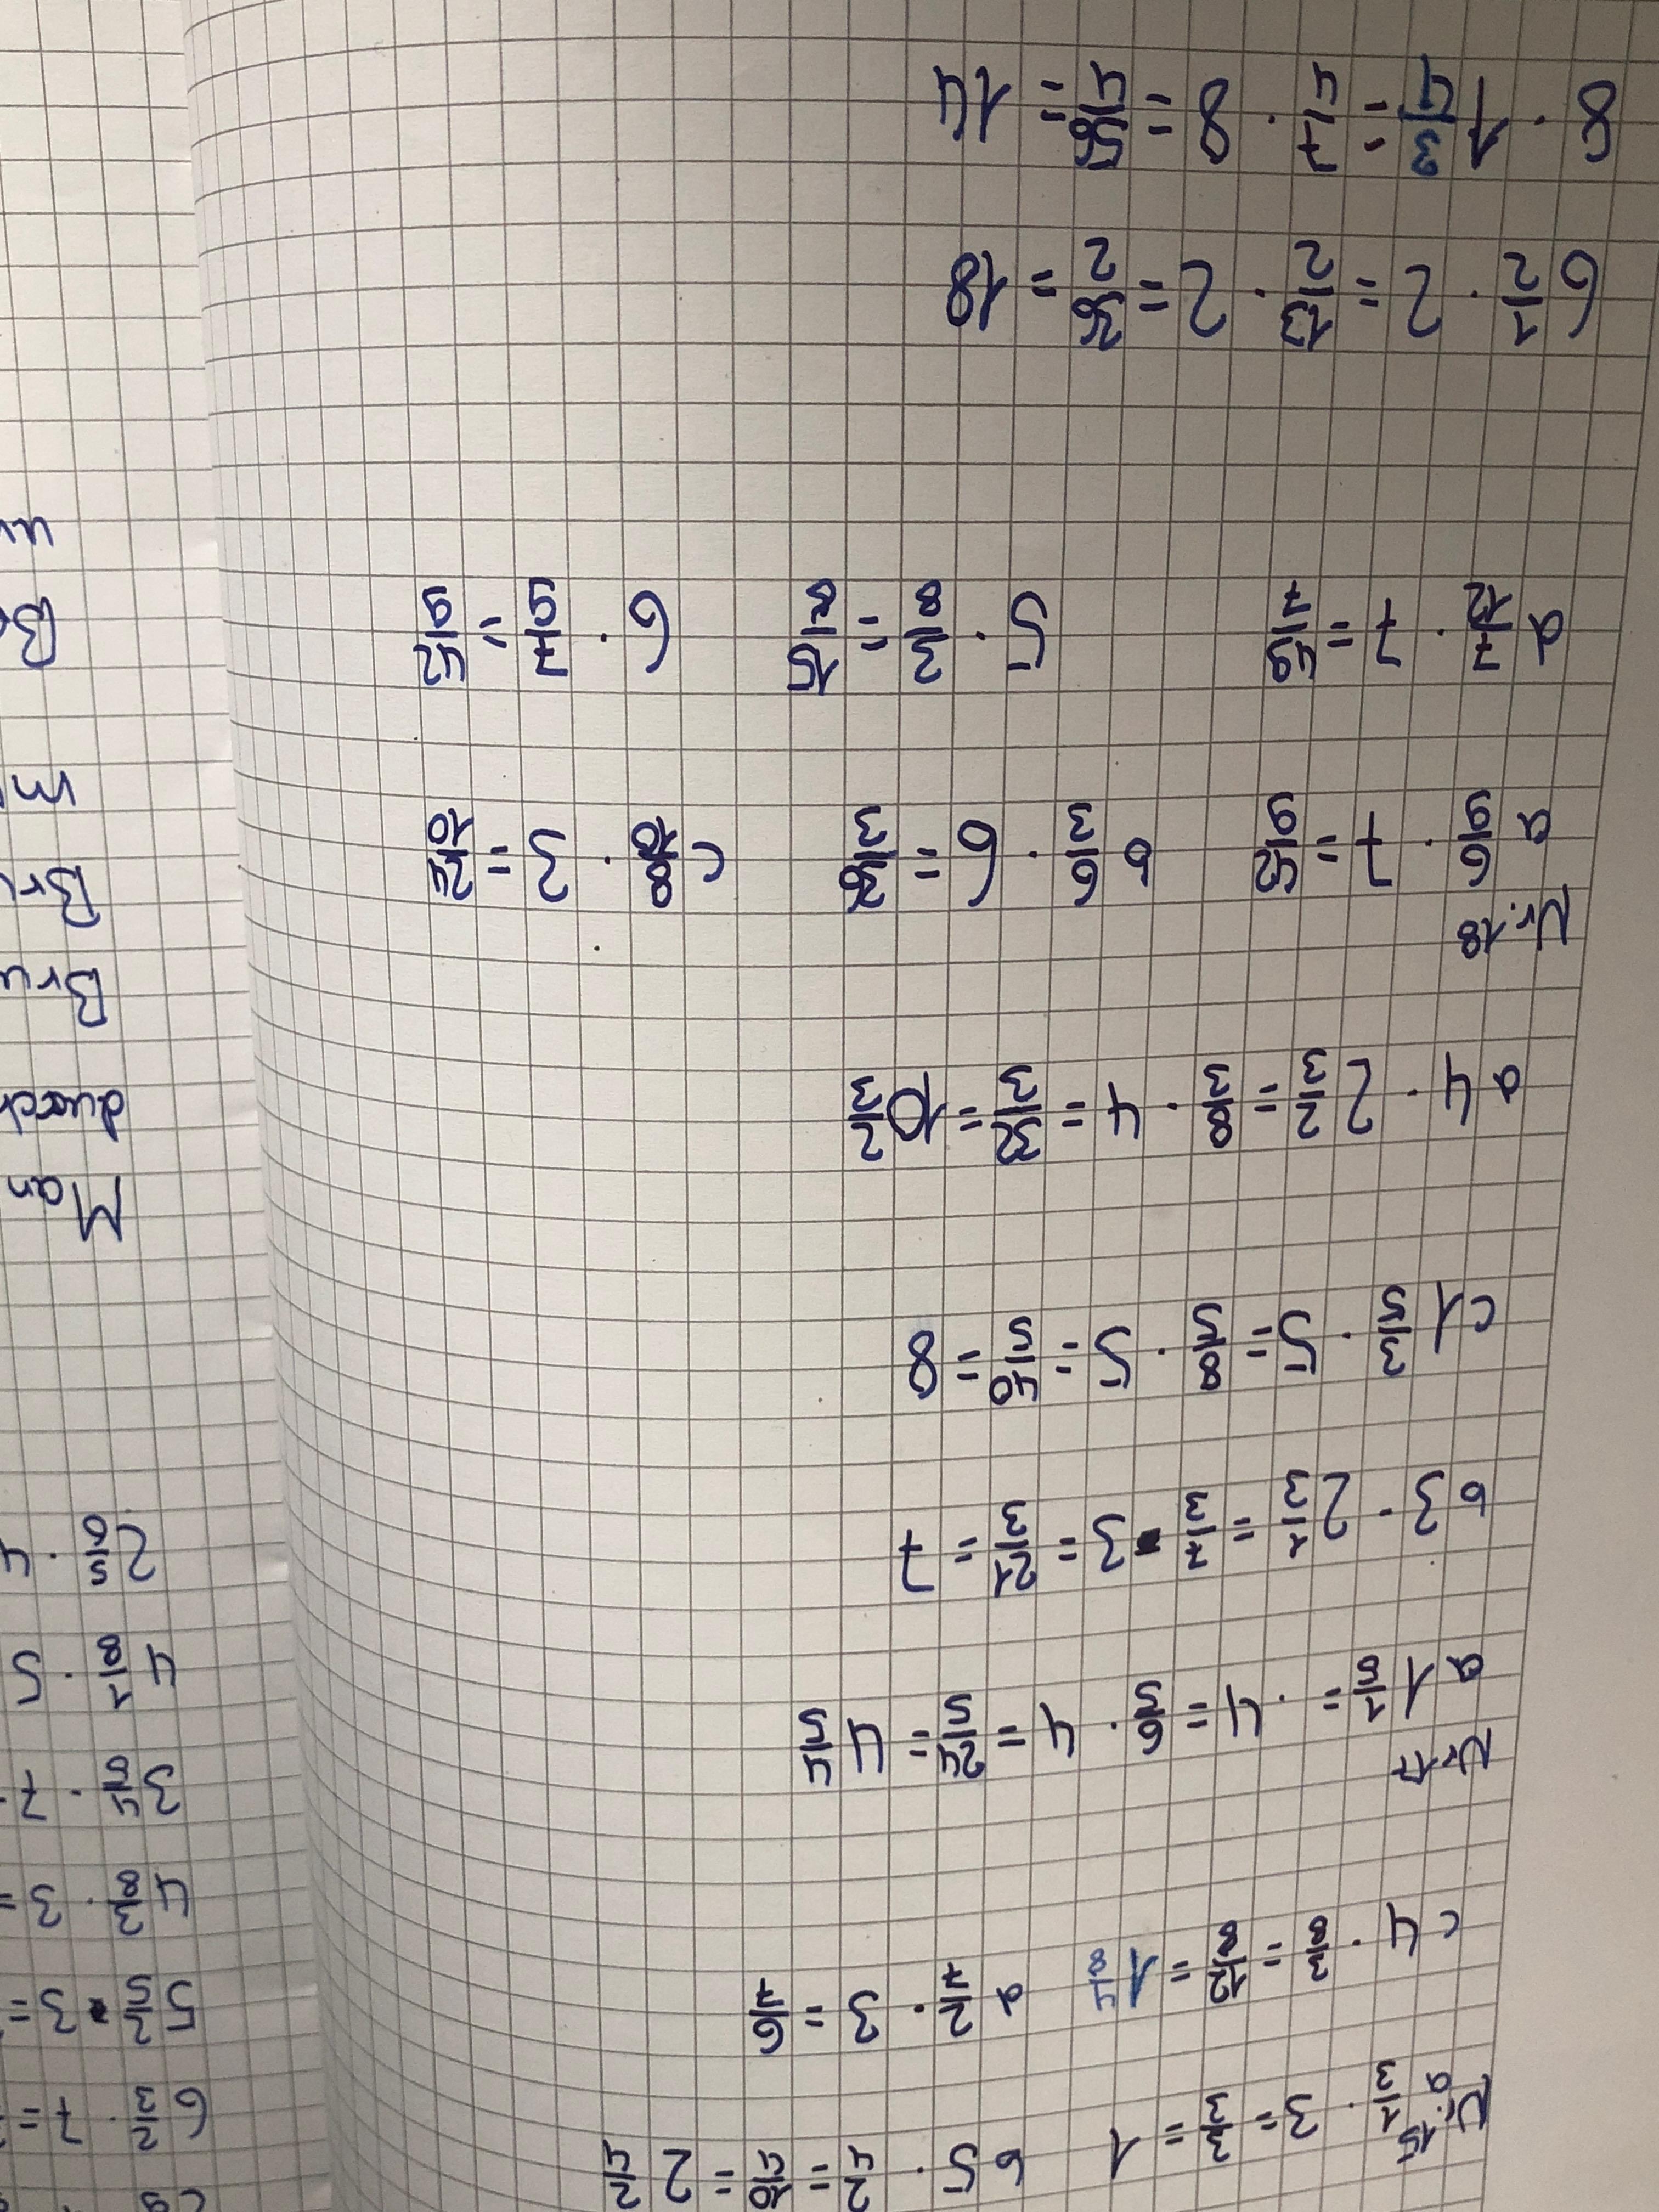 Nr. 15
a 1/3 · 3 = 3/3 = 1 b 5 · 2/4 = 10/4 = 2 2/4
c 4 · 3/8 = 12/8 = 1 4/8 d 2/7 · 3 = 6/7
Nr. 17
a 1 1/5 = · 4 = 6/5 · 4 = 24/5 = 4 4/5
b 3 · 2 1/3 = 7/3 · 3 = 21/3 = 7
c 1 3/5 · 5 = 8/5 · 5 = 40/5 = 8
d 4 · 2 2/3 = 8/3 · 4 = 32/3 = 10 2/3
Nr. 18
a 6/9 · 7 = 42/9 b 6/3 · 6 = 36/3 c 8/10 · 3 = 24/10
d 7/12 · 7 = 49/7 5 · 3/8 = 15/8 6 · 7/9 = 42/9
6 1/2 · 2 = 13/2 · 2 = 36/2 = 18
8 · 1 3/4 = 7/4 · 8 = 56/4 = 14
6 2/3 · 7 =
5 2/5 · 3 =
4 3/8 · 3 =
3 4/5 · 7
4 1/8 · 5
2 5/6 · 4
Man
Bru
Bru